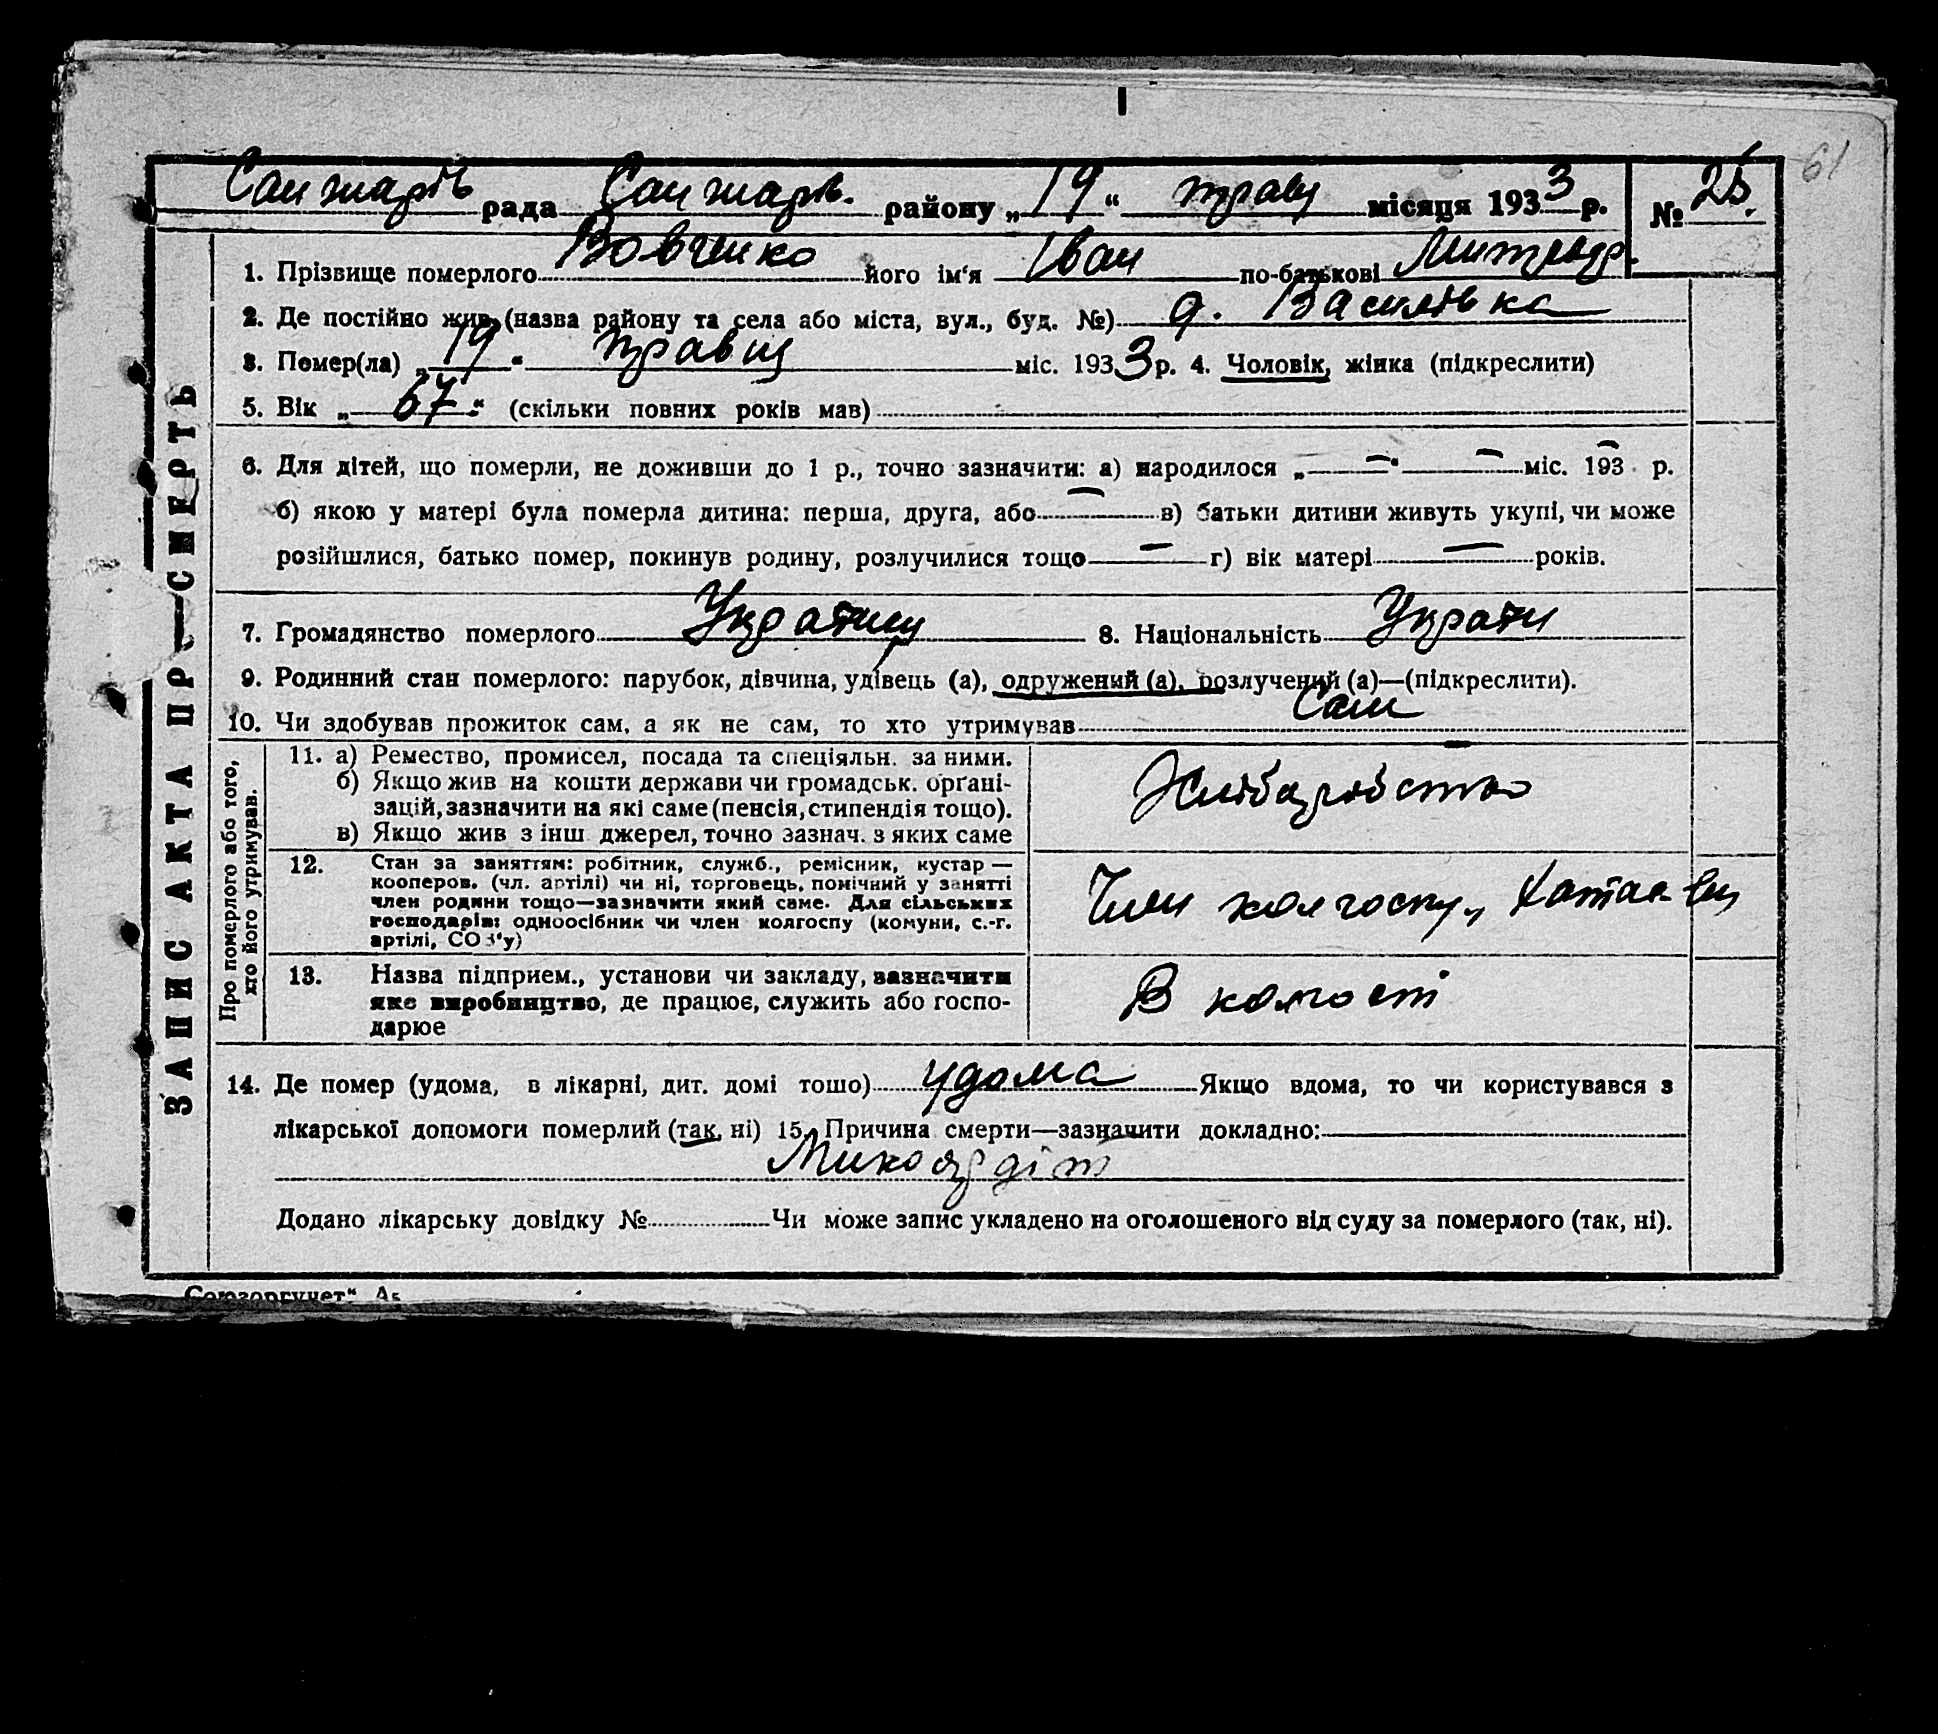 61
Санжарів рада Санжарів. району „19“ травня місяця 1933 р. № 25.
1. Прізвище померлого Вовченко його ім‘я Іван по-батькові
2. Де постійно жив (назва району та села або міста, вул., буд. №) Василівка
3. Помер(ла) „19“ травня міс. 1933 р. 4. Чоловік, жінка (підкреслити)
5. Вік „67“ (скільки повних років мав)
6. Для дітей, що померли, не доживши до 1 р., точно зазначити: а) народилося „—“ — міс. 193 р.
б) якою у матері була померла дитина: перша, друга, або — в) батьки дитини живуть укупі, чи може
розійшлися, батько помер, покинув родину, розлучилися тощо — г) вік матері — років.
7. Громадянство померлого 8. Національність
9. Родинний стан померлого: парубок, дівчина, удівець (а), одружений (а), розлучений (а)—(підкреслити).
10. Чи здобував прожиток сам, а як не сам, то хто утримував Сам
ЗАПИС АКТА ПРО СМЕРТЬ
Про померлого або того, хто його утримував.
11. а) Ремество, промисел, посада та спеціяльн. за ними.
б) Якщо жив на кошти держави чи громадськ. орґані-
зацій, зазначити на які саме (пенсія, стипендія тощо).
в) Якщо жив з інш. джерел, точно зазнач. з яких саме
Хліборобство
12. Стан за заняттям: робітник, служб., ремісник, кустар —
кооперов. (чл. артілі) чи ні, торговець, помічний у занятті
член родини тощо—зазначити який саме. Для сільських
господарів: одноосібник чи член колгоспу (комуни, с.-г.
артілі, СОЗ‘у)
Член колгоспу,
13. Назва підприєм., установи чи закладу, зазначити
яке виробництво, де працює, служить або госпо-
дарює
В колгоспі
14. Де помер (удома, в лікарні, дит. домі тощо) удома Якщо вдома, то чи користувався з
лікарської допомоги померлий (так, ні) 15. Причина смерти—зазначити докладно:
Миокардіт
Додано лікарську довідку № Чи може запис укладено на оголошеного від суду за померлого (так, ні).
Союзоргучет“